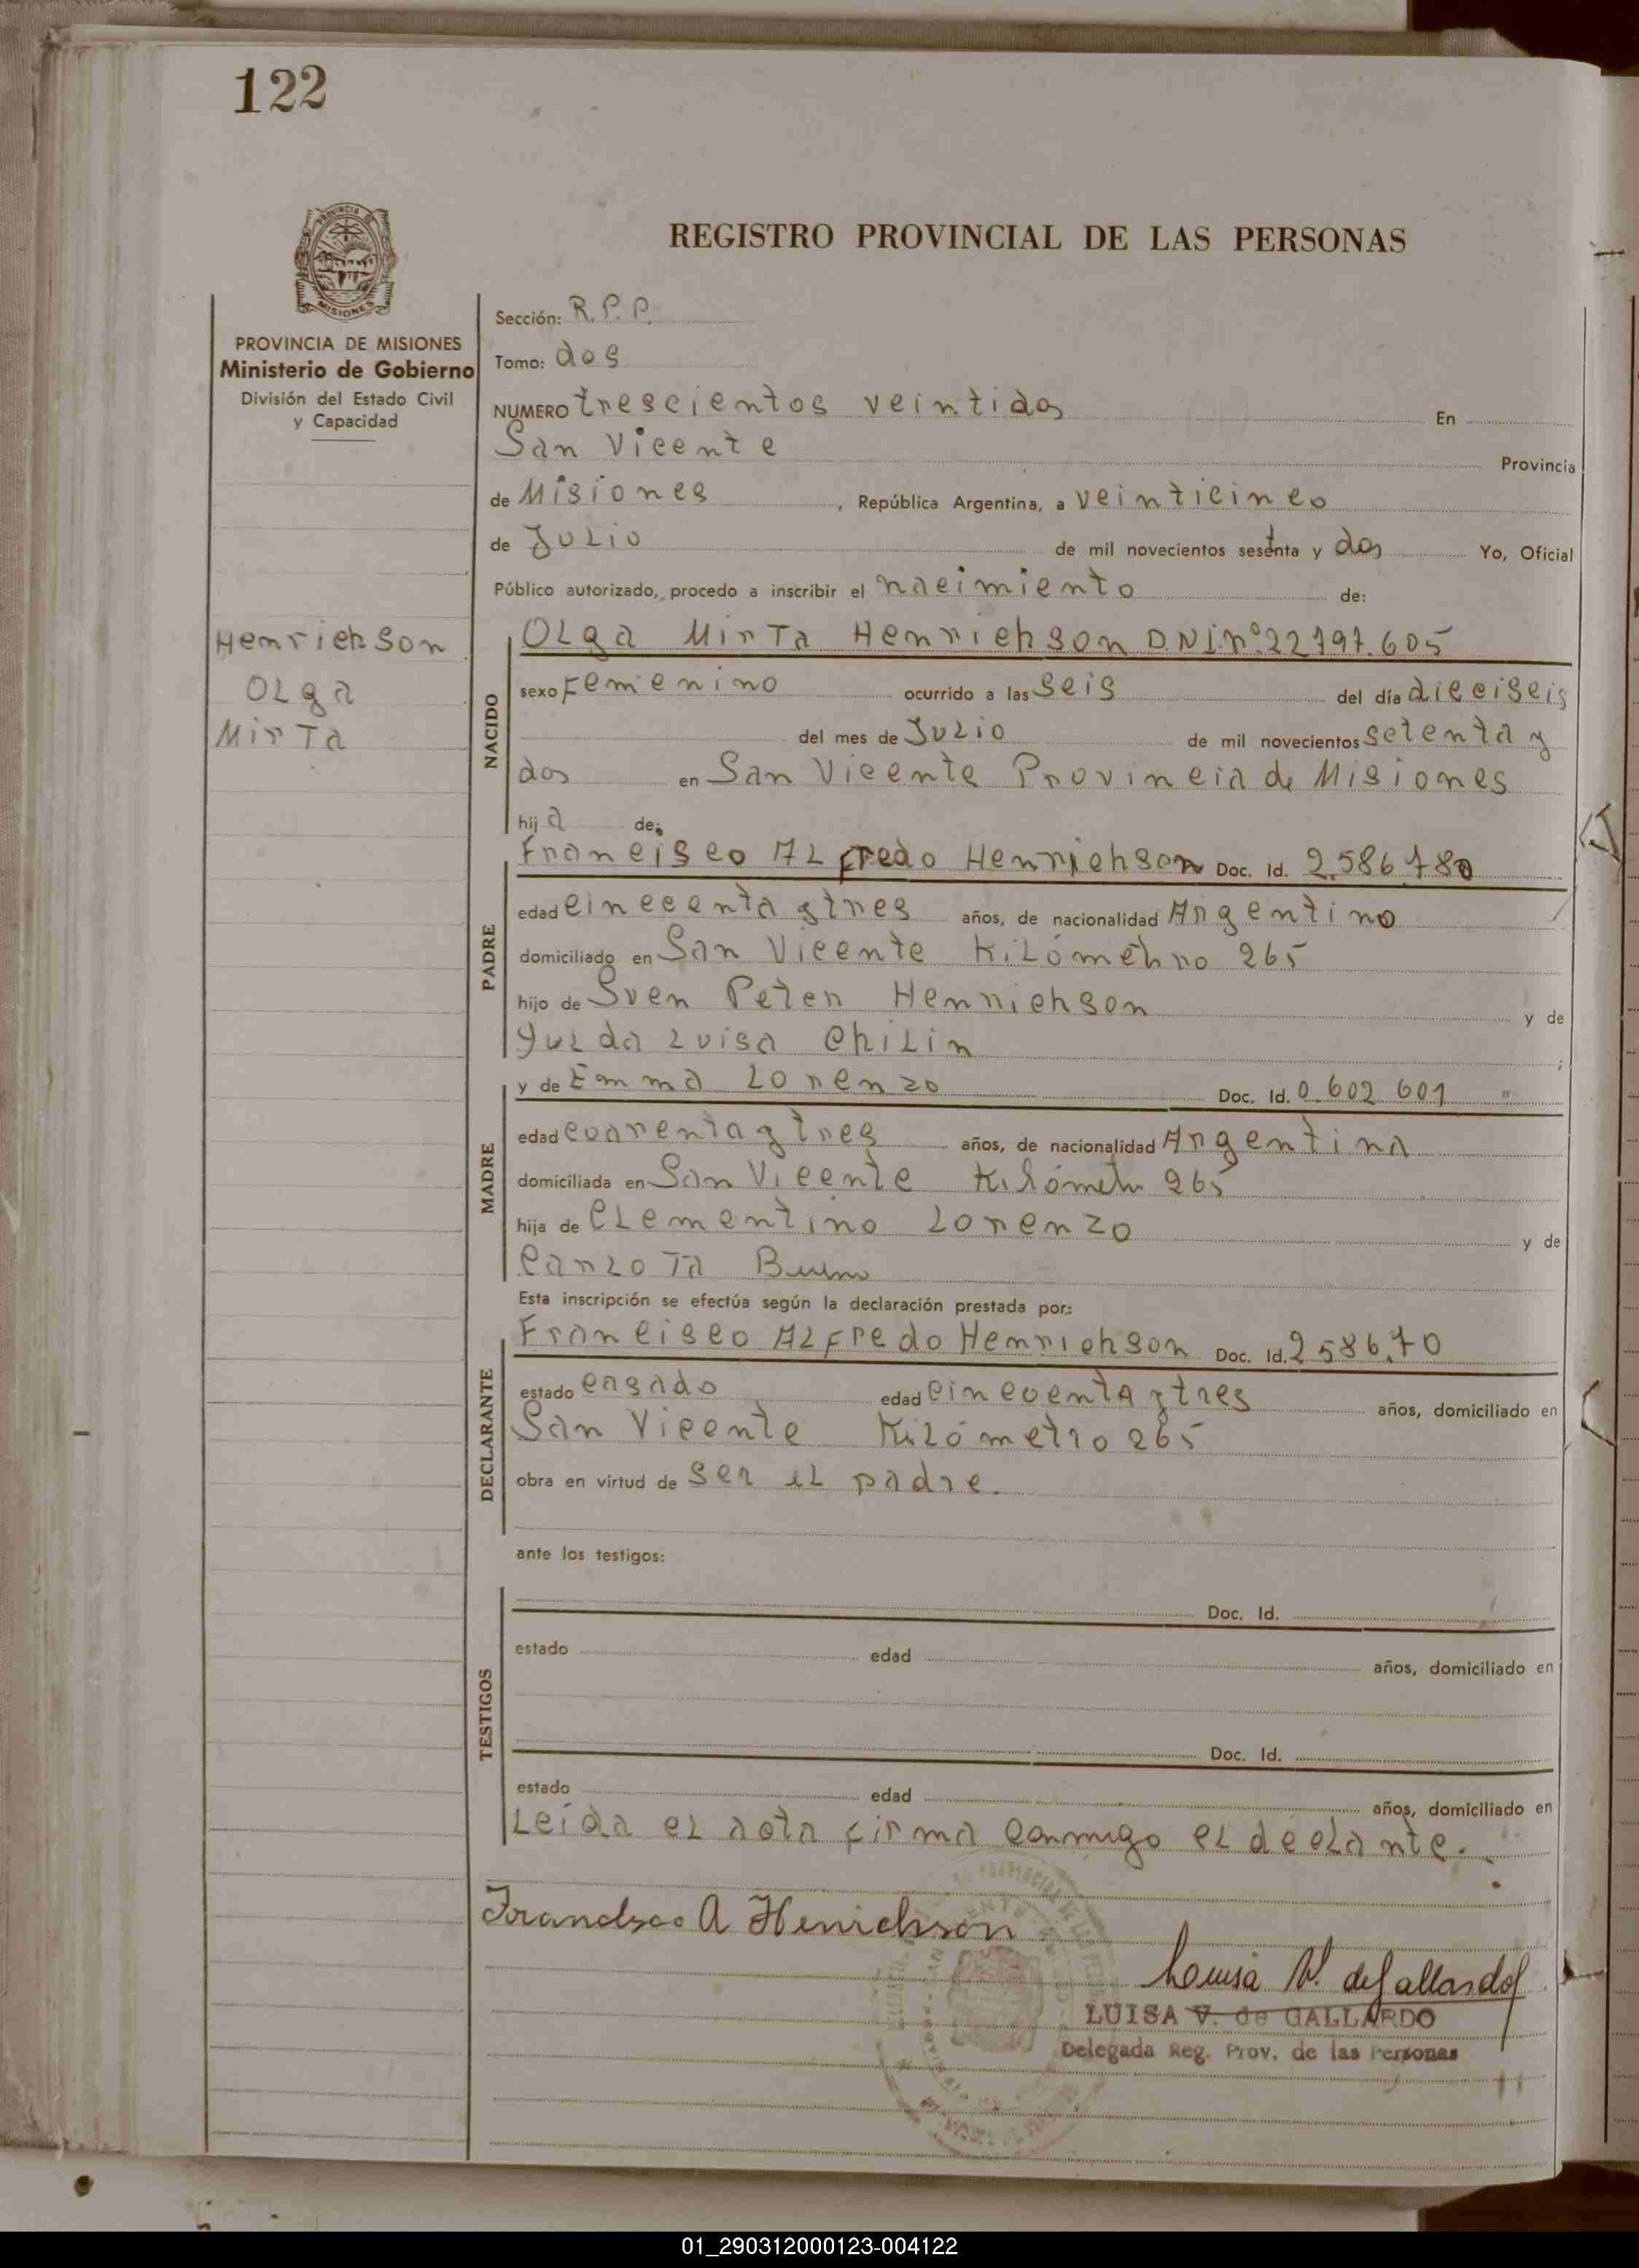 122
REGISTRO PROVINCIAL DE LAS PERSONAS
PROVINCIA DE MISIONES
Ministerio de Gobierno
División del Estado Civil
y Capacidad
Henrichson
Olga
Mirta
Sección: R.P.P.
Tomo: dos
NUMERO trescientos veintidos En
San Vicente Provincia
de Misiones, República Argentina, a veinticinco
de Julio de mil novecientos setenta y dos Yo, Oficial
Público autorizado, procedo a inscribir el nacimiento de:
NACIDO
Olga Mirta Henrichson D.N.I. nº 22797.605
sexo Femenino ocurrido a las seis del día dieciseis
del mes de Julio de mil novecientos setenta y
dos en San Vicente Provincia de Misiones
hija de:
PADRE
Francisco Alfredo Henrichson Doc. Id. 2.586.780
edad cincuenta y tres años, de nacionalidad Argentino
domiciliado en San Vicente Kilómetro 265
hijo de Sven Peter Henrichson y de
Yulda Luisa Chilin;
MADRE
y de Emma Lorenzo Doc. Id. 0.602 601
edad cuarenta y tres años, de nacionalidad Argentina
domiciliada en San Vicente Kilómetro 265
hija de Clementino Lorenzo y de
Carlota Bueno
Esta inscripción se efectúa según la declaración prestada por:
DECLARANTE
Francisco Alfredo Henrichson Doc. Id. 2586.70
estado casado edad cincuenta y tres años, domiciliado en
San Vicente Kilómetro 265
obra en virtud de ser el padre.
ante los testigos:
TESTIGOS
Doc. Id.
estado edad años, domiciliado en
Doc. Id.
estado edad años, domiciliado en
Leída el acta firma conmigo el declante.
Francisco A Henrichson
Louisa V. de Gallardo
LUISA V. de GALLARDO
Delegada Reg. Prov. de las Personas
01_290312000123-004122